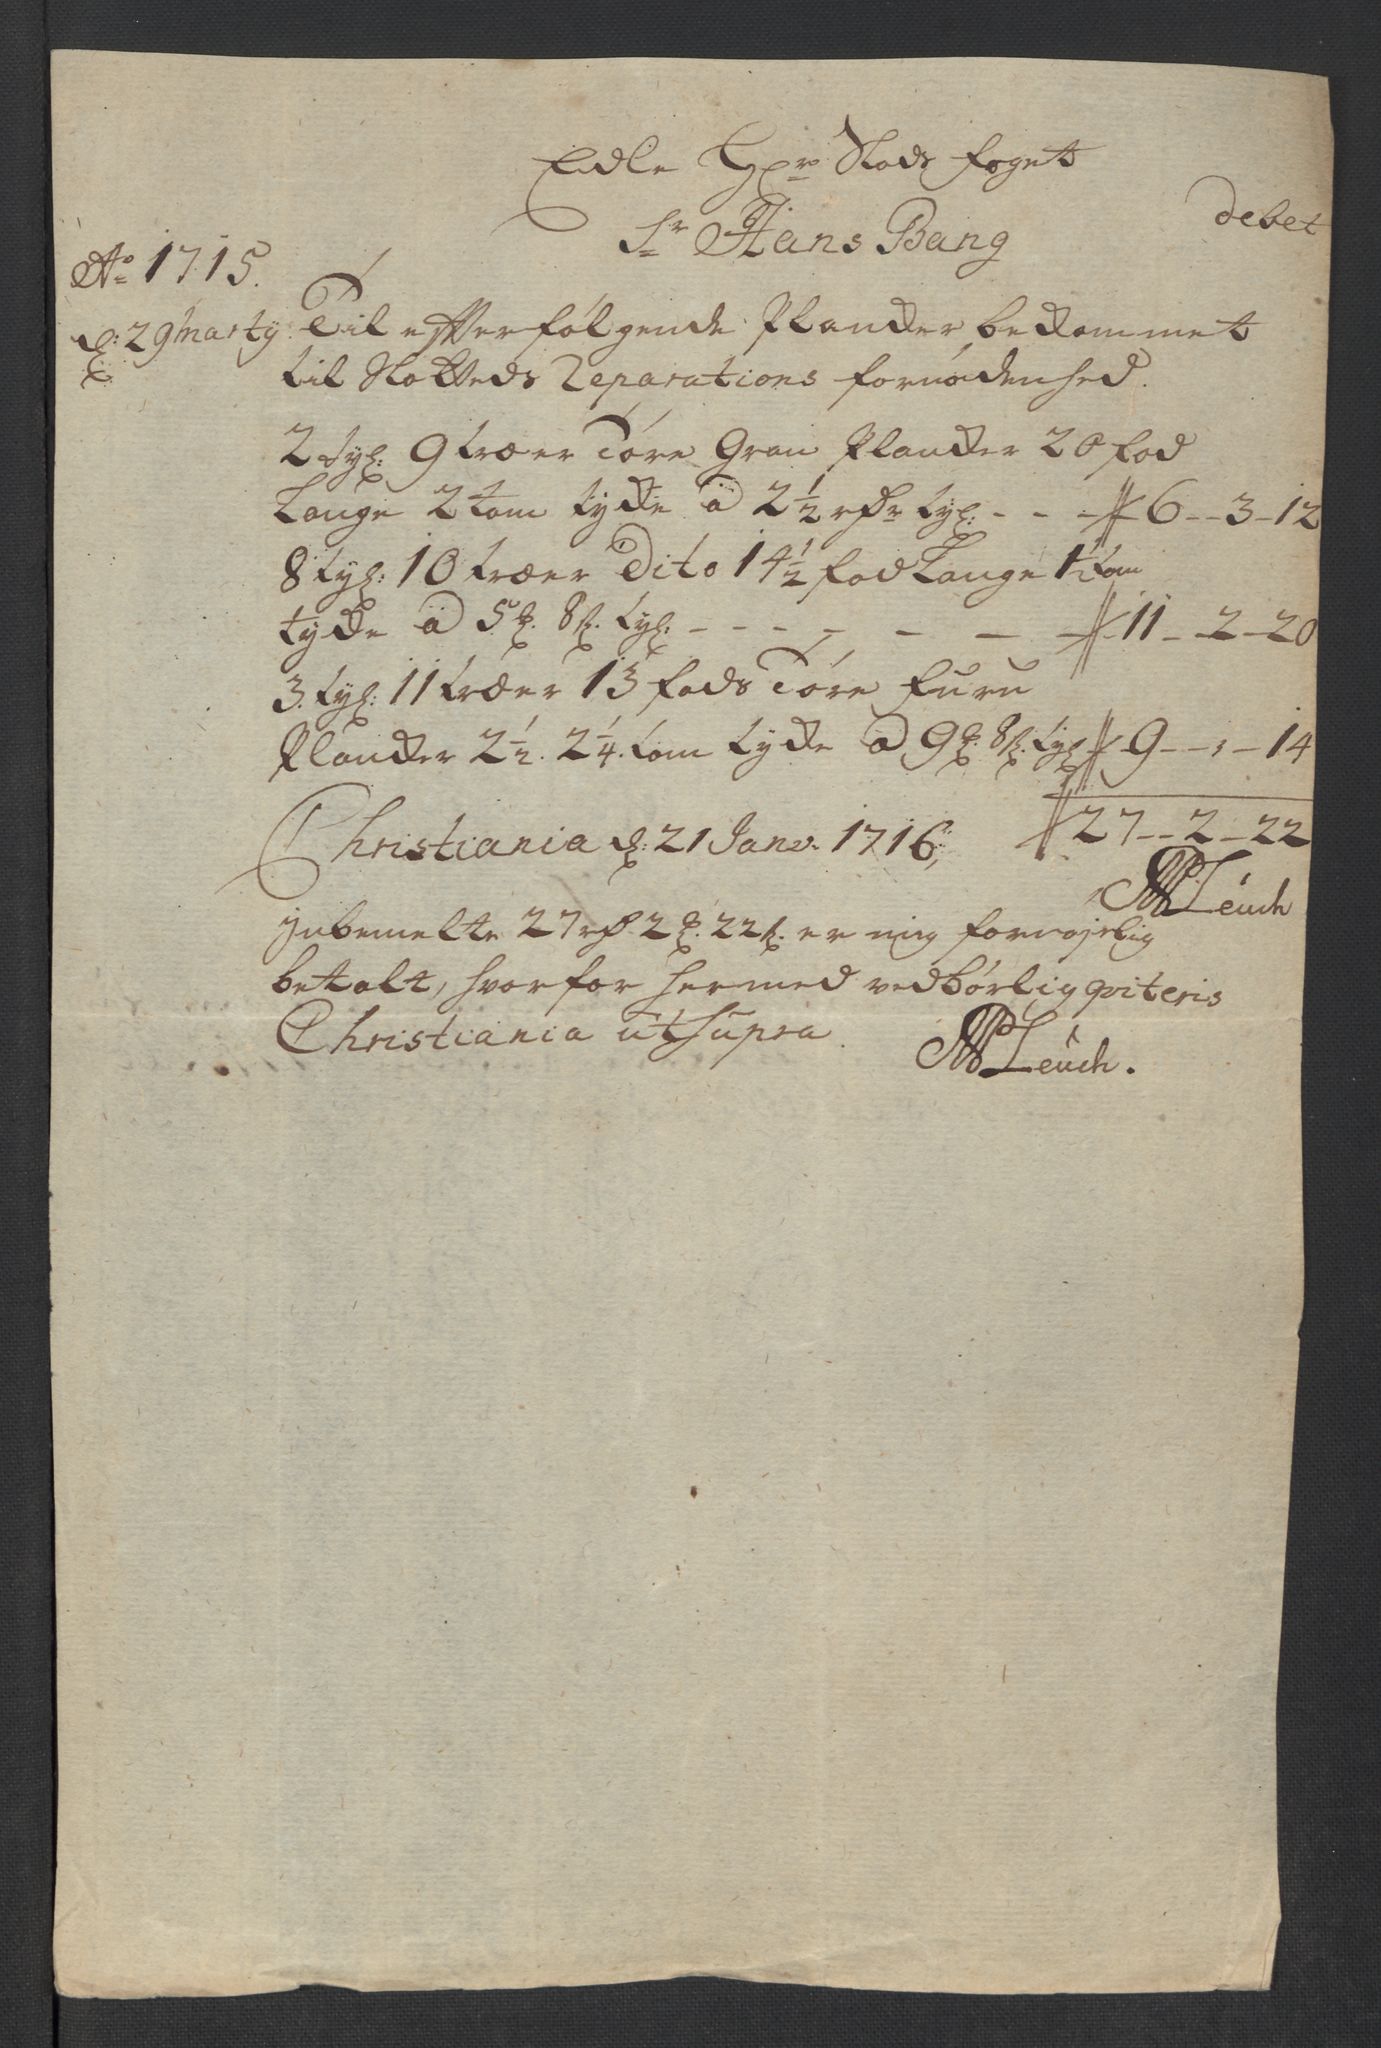 Edle Hr Slods foget
debet
Sr Hans Bang
Ao 1715.
d: 29 Marty Til effterfølgende Plancker bekommet
til Slotteds Reparations fornødenhed.
2 tyl: 9 træer Tøre Gran Plancker 20 fod
Lange 2 tom tycke a 2½ rdr tyl: - - - 6 - 3 - 12
8 tyl: 10 træer Dito 14½ fod Lange 1½ tom
tycke a 5 Ort. 8 s. tyl: - - - - - - - 11 - 2 - 20
3. tyl: 11 træer 13 fods Tøre Furu
Plancker 2½. 2¼. tom tycke a 9 Ort. 8 s. tyl 9 - - 14
Christiania d: 21 Janv. 1716, 27 - 2 - 22
Leuch
Inbemelte 27 rd 2 Ort. 22 s. er mig fornøjelig
betalt, hvorfor hermed vedbørlig qviteris
Christiania ut Supra.
Leuch.